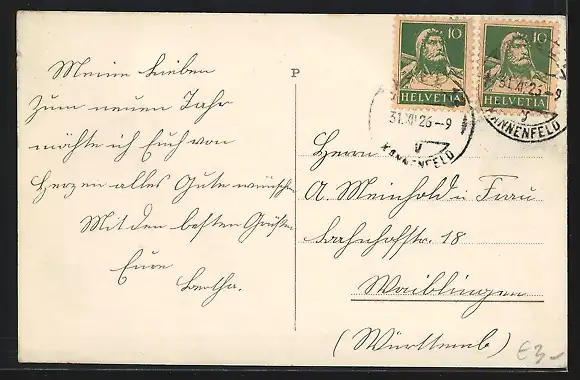 Meine Lieben
Zum neuen Jahr
möchte ich Euch von
Herzen alles Gute wünschen
Mit den besten Grüßen
Eure
Bertha.
P
10
HELVETIA
10
HELVETIA
31.XII.23-9
V
KANNENFELD
31.XII.23-9
V
KANNENFELD
Herrn
A. Meinhold u Frau
Bahnhofstr. 18
Waiblingen
(Württemb)
€3-